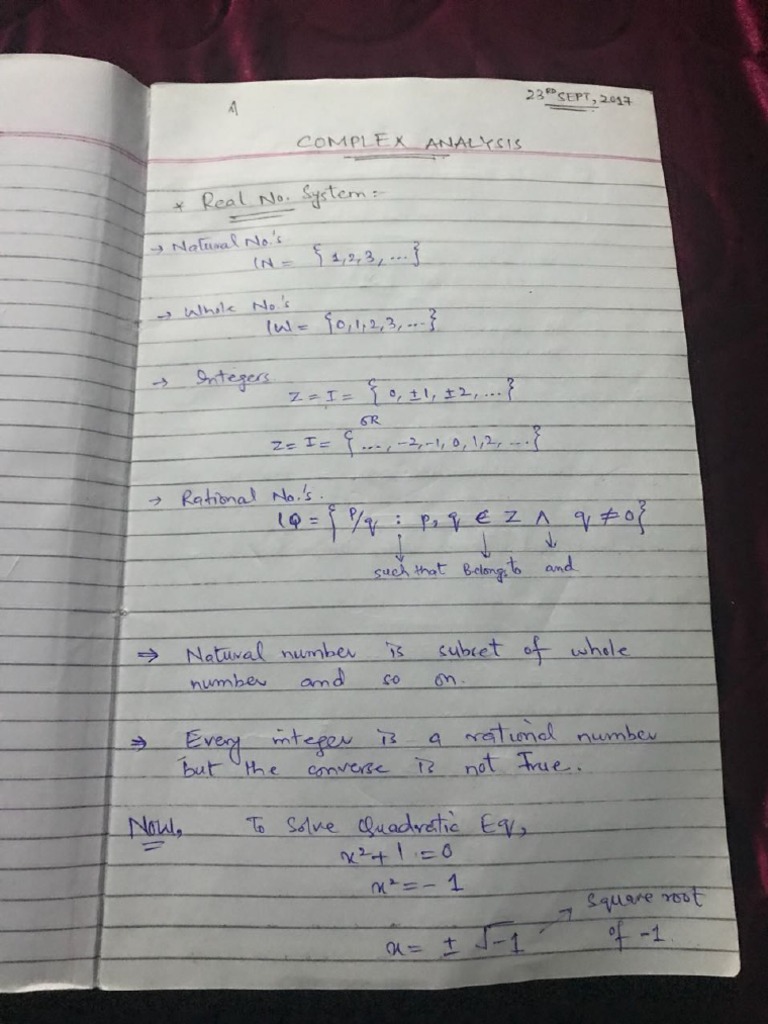 A
23RD SEPT, 2017
COMPLEX ANALYSIS
* Real No. System :-
→ Natural No.'s
IN = {1,2,3, ...}
→ Whole No.'s
IW = {0,1,2,3, ...}
→ Integers
Z = I = {0, ±1, ±2, ...}
OR
Z = I = {..., -2, -1, 0, 1, 2, ...}
→ Rational No.'s.
IQ = {P/q : p, q ∈ Z ∧ q ≠ 0}
such that Belongs to and
⇒ Natural number is subset of whole
number and so on.
⇒ Every integer is a rational number
but the converse is not True.
Now, To Solve Quadratic Eq,
x² + 1 = 0
x² = - 1
x = ± √-1 → Square root
of -1.